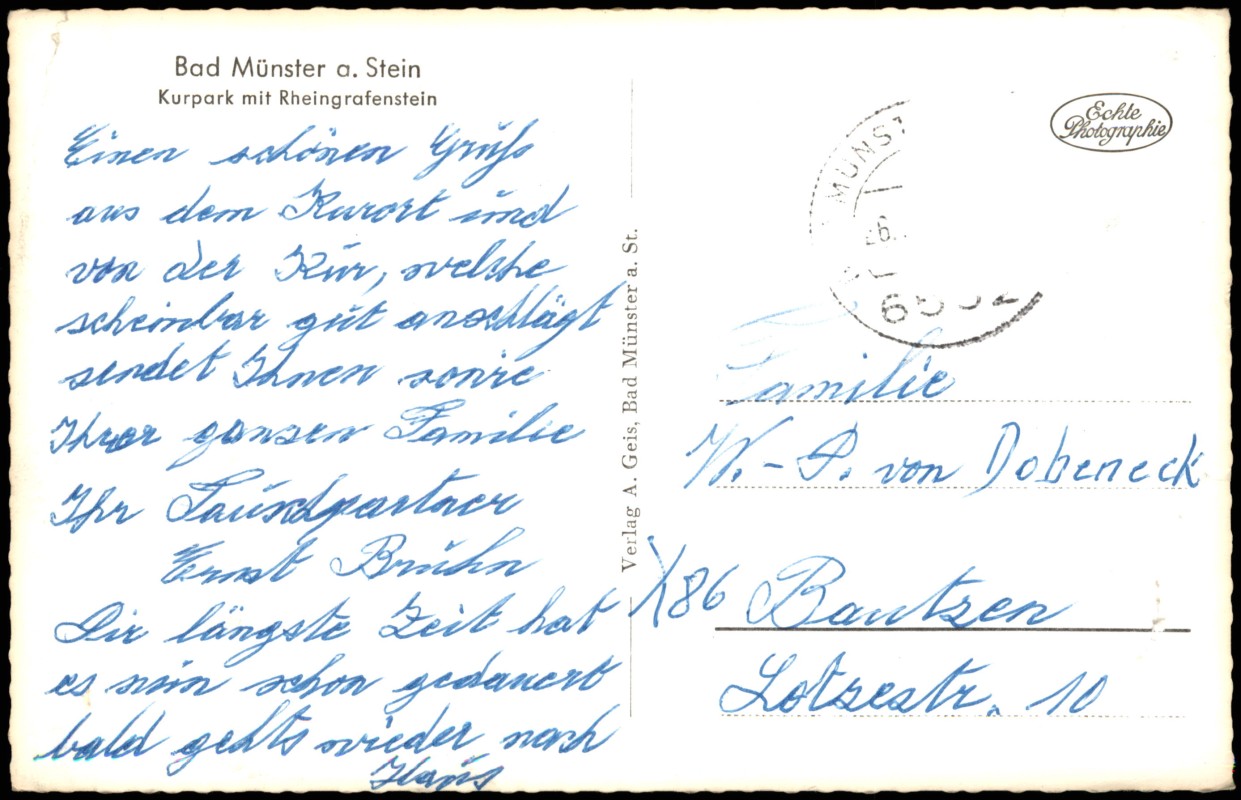 Bad Münster a. Stein
Kurpark mit Rheingrafenstein
Einen schönen Gruß
aus dem Kurort und
von der Kur, welche
scheinbar gut anschlägt
sendet Ihnen sowie
Ihrer ganzen Familie
Ihr Tauschpartner
Ernst Bruhn
Die längste Zeit hat
es nun schon gedauert
bald gehts wieder nach
Haus
Verlag A. Geis, Bad Münster a. St.
Echte
Photographie
MÜNST
Familie
W.-P. von Dobeneck
X86 Bautzen
Lotzestr. 10